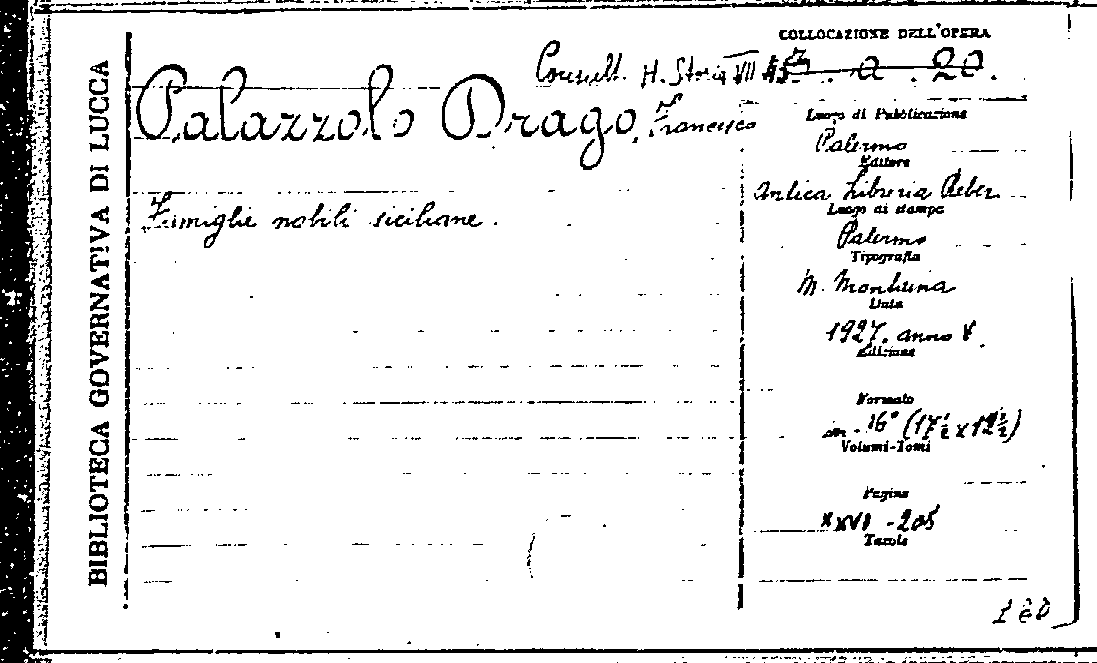 BIBLIOTECA GOVERNATIVA DI LUCCA
COLLOCAZIONE DELL'OPERA
Consult. H. Storia VII
. a . 20.
Palazzolo Drago, Francesco
Famiglie nobili siciliane.
Luogo di Pubblicazione
Palermo
Editore
Antica Libreria Reber
Luogo di stampa
Palermo
Tipografia
M. Montaina
Data
1927. anno V.
Edizione
Formato
in-16° (17½ x 12½)
Volumi-Tomi
Pagine
XXVI - 205
Tavole